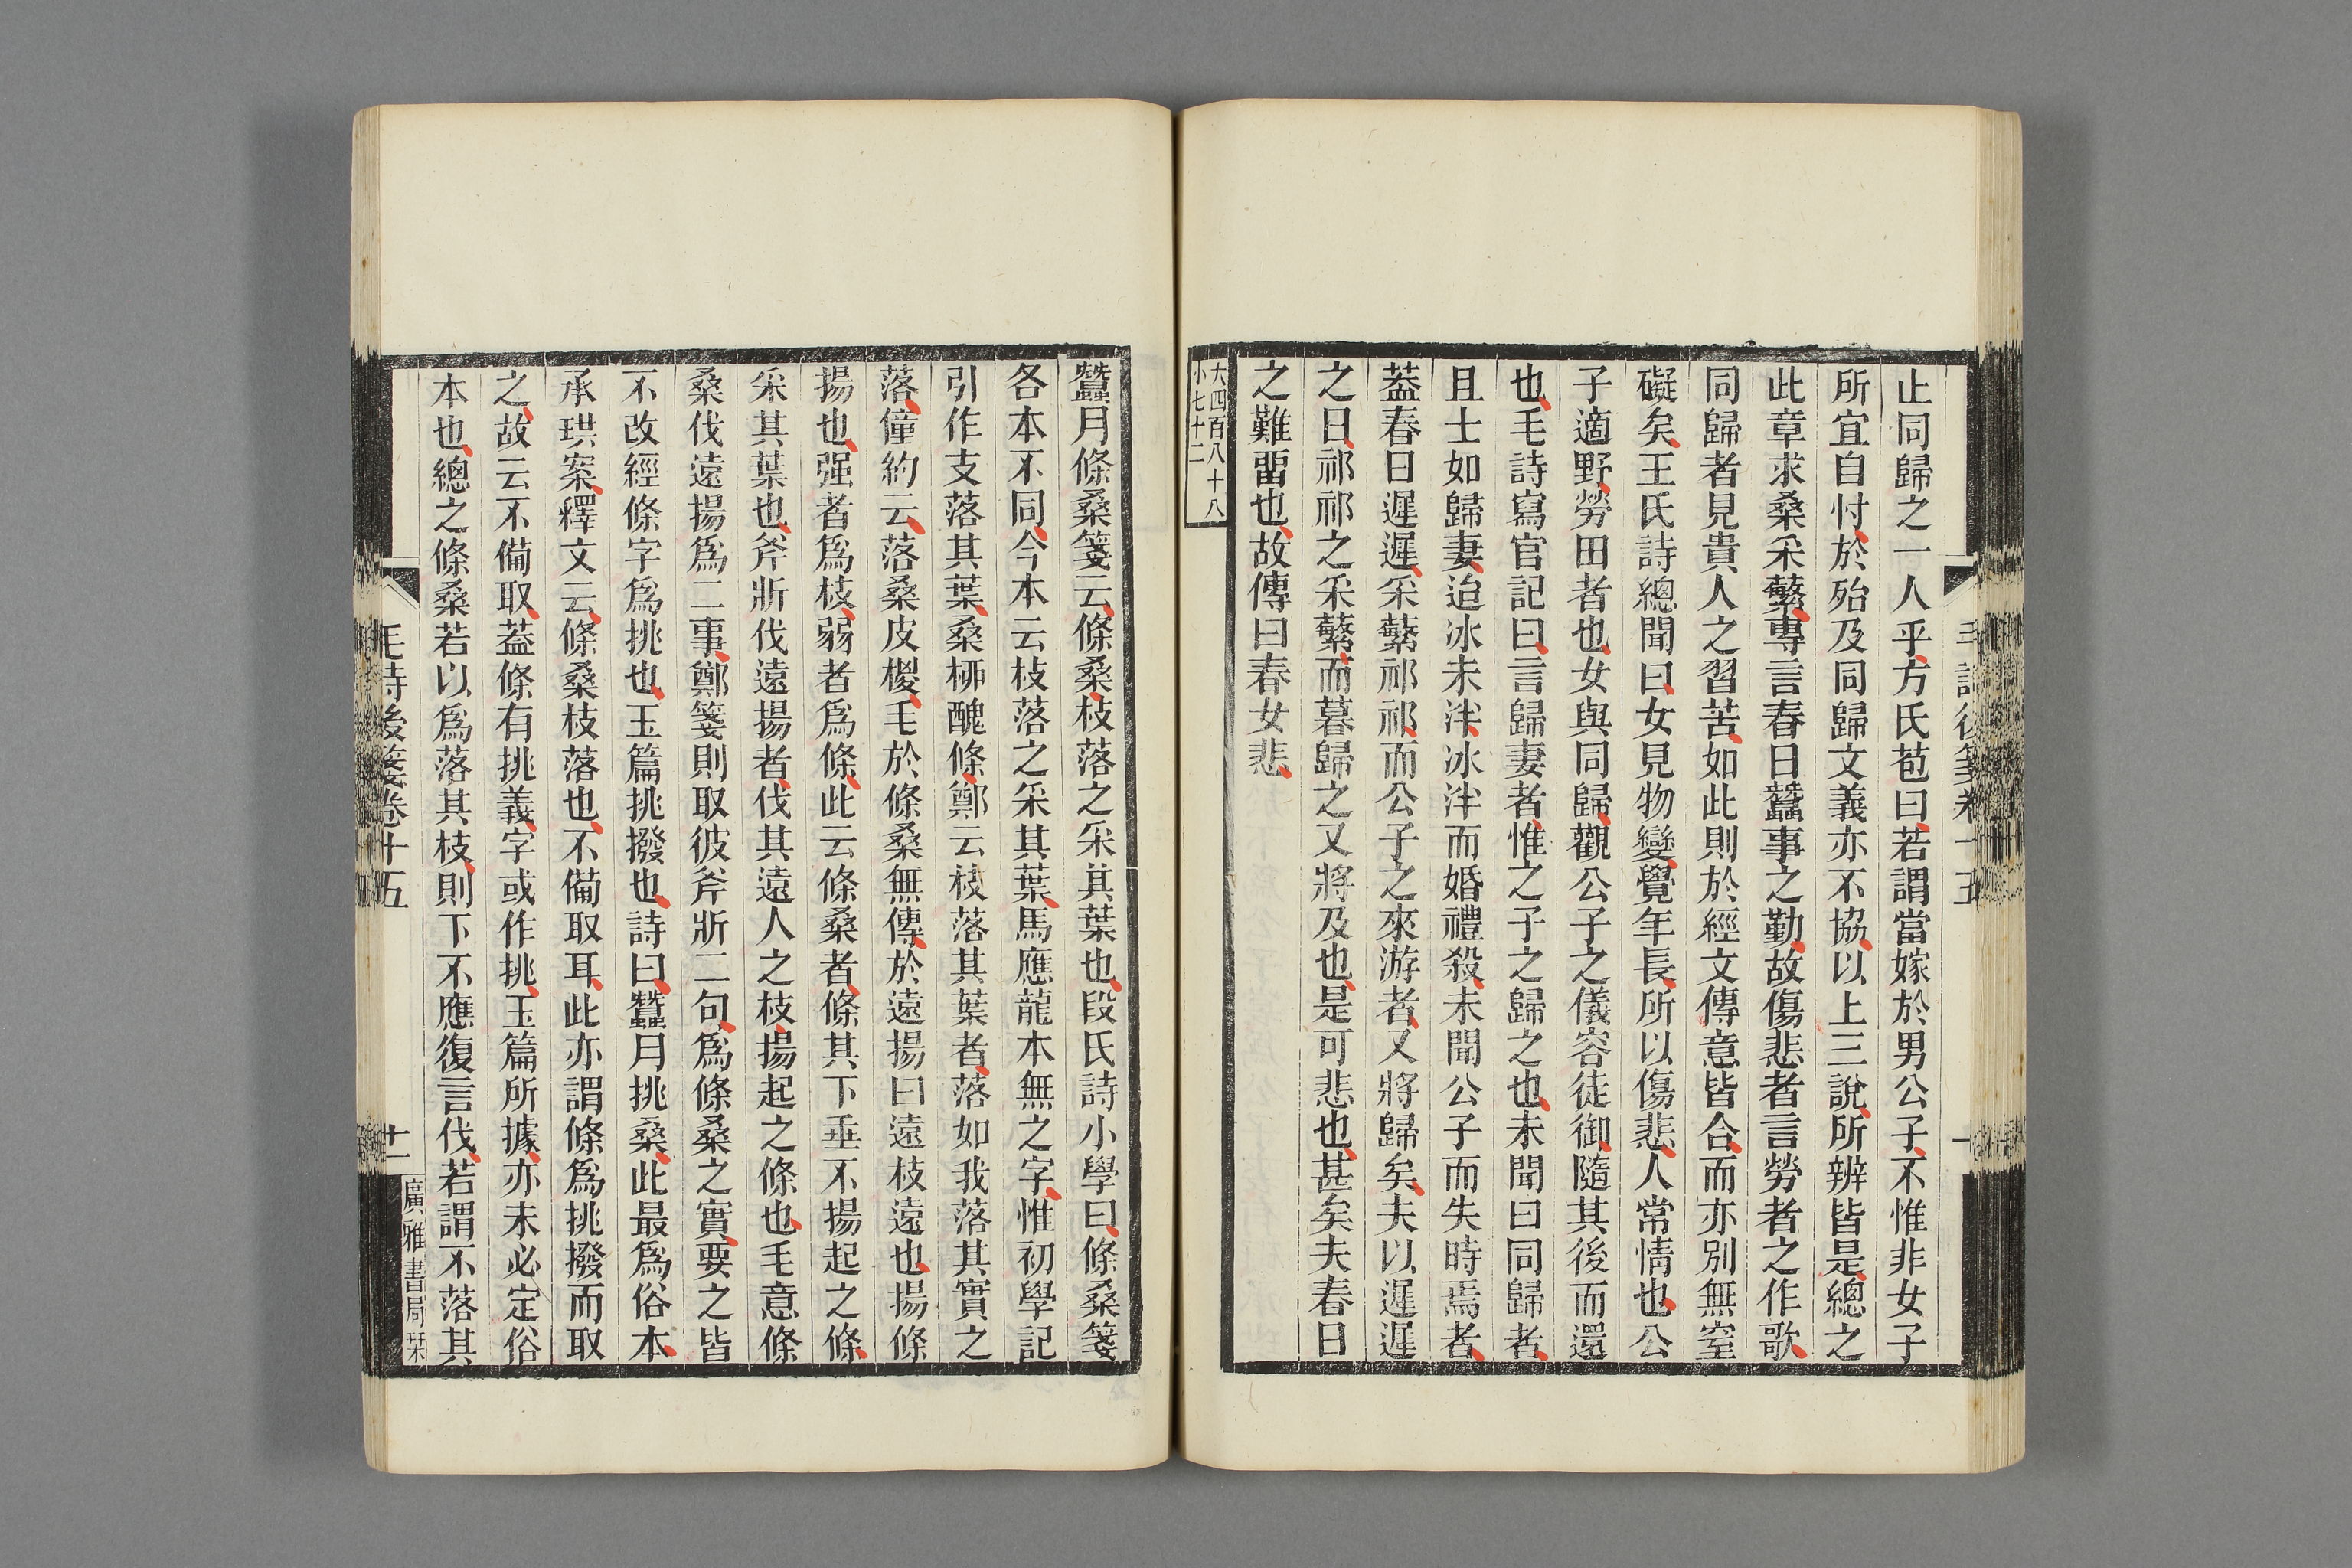 止同歸之一人乎方氏苞曰若謂當嫁於男公子不惟非女子
所宜自忖於殆及同歸文義亦不協以上三說所辨皆是總之
此章求桑采蘩專言春日蠶事之勤故傷悲者言勞者之作歌
同歸者見貴人之習苦如此則於經文傳意皆合而亦別無窒
礙矣王氏詩總聞曰女見物變覺年長所以傷悲人常情也公
子適野勞田者也女與同歸觀公子之儀容徒御隨其後而還
也毛詩寫官記曰言歸妻者惟之子之歸之也未聞曰同歸者
且士如歸妻迨冰未泮冰泮而婚禮殺未聞公子而失時焉者
葢春日遲遲采蘩祁祁而公子之來游者又將歸矣夫以遲遲
之日祁祁之采蘩而暮歸之又將及也是可悲也甚矣夫春日
之難畱也故傳曰春女悲
大四百八十八
小七十二
蠶月條桑箋云條桑枝落之采其葉也段氏詩小學曰條桑箋
各本不同今本云枝落之采其葉馬應龍本無之字惟初學記
引作支落其葉桑柳醜條鄭云枝落其葉者落如我落其實之
落僮約云落桑皮椶毛於條桑無傳於遠揚曰遠枝遠也揚條
揚也强者爲枝弱者爲條此云條桑者條其下垂不揚起之條
采其葉也斧斨伐遠揚者伐其遠人之枝揚起之條也毛意條
桑伐遠揚爲二事鄭箋則取彼斧斨二句爲條桑之實要之皆
不改經條字爲挑也玉篇挑撥也詩曰蠶月挑桑此最爲俗本
承珙案釋文云條桑枝落也不備取耳此亦謂條爲挑撥而取
之故云不備取葢條有挑義字或作挑玉篇所據亦未必定俗
本也總之條桑若以爲落其枝則下不應復言伐若謂不落其
毛詩後箋卷十五
十一
廣雅書局栞